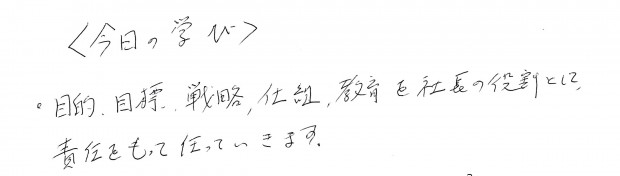 〈今日の学び〉
・目的、目標、戦略、仕組、教育を社長の役割として、
責任をもって行っていきます。